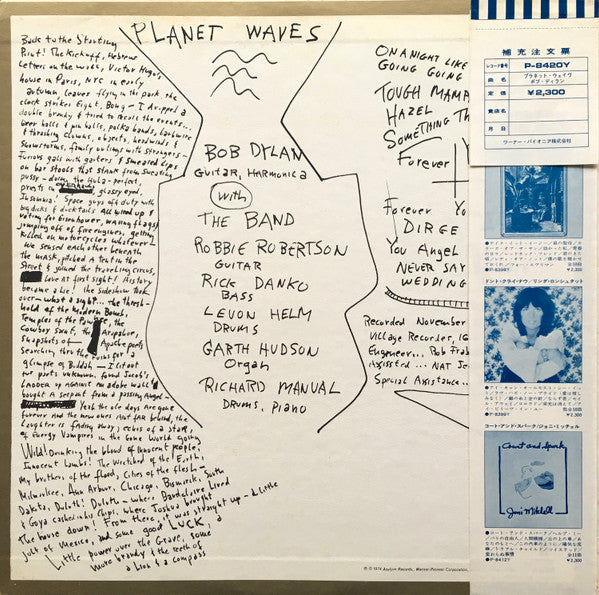 PLANET WAVES
Back to the Starting
Point! The Kickoff, Hebrew
Letters on the wall, Victor Hugo's
house in Paris, NYC in early
autumn, leaves flying in the park, the
clock strikes Eight, Bong — I dropped a
double brandy & tried to recall the events...
beer halls & pin balls, polka bands, barbwire
& thrashing clowns, objects, headwinds &
snowstorms, family outings with strangers —
Furious gals with garters & smeared lips
on bar stools that stank from sweating
pussy — doing the Hula — perfect,
priests in overhauls, glassy eyed,
Insomnia! Space guys off duty with
big dicks & ducktails all wired up &
voting for Eisenhower, waving flags &
jumping off of fire engines, getting
killed on motorcycles whatever —
We sensed each other beneath
the mask, pitched a tent in the
Street & joined the traveling circus,
Love at first sight! History
became a lie! The sideshow took
over — what a sight... the thresh-
hold of the Modern Bomb,
Temples of the Pawnee, the
Cowboy Saint, the Arapahoe,
snapshots of Apache poets
searching thru the ruins for a
glimpse of Buddah — I lit out
for parts unknown, found Jacob's
ladder up against an adobe wall &
bought a serpent from a passing angel —
Yeah the ole days are gone
forever And the new ones Aint far behind, the
Laughter is fading away, echos of a star,
of Energy Vampires in the Gone World going
Wild! Drinking the blood of innocent people,
Innocent Lambs! The Wretched of the Earth,
My brothers of the flood, Cities of the flesh —
Milwaukee, Ann Arbor, Chicago, Bismarck, South
Dakota, Duluth! Duluth — where Baudelaire Lived
& Goya cashed in his Chips, where Joshua brought
The house down! From there, it was straight up — a little
jolt of Mexico, and some good LUCK, a
Little power over the Grave, some
more brandy & the teeth of
a lion & a compass
BOB DYLAN
GUITAR, HARMONICA
with
THE BAND
ROBBIE ROBERTSON
GUITAR
RICK DANKO
BASS
LEVON HELM
DRUMS
GARTH HUDSON
Organ
RICHARD MANUAL
DRUMS, PIANO
ON A NIGHT LIKE
GOING GOING
TOUGH MAMA
HAZEL
SOMETHING TH
Forever
Forever Yo
DIRGE
You Angel
NEVER SAY
WEDDING
Recorded November
Village Recorder,
Engeneer... Rob Frab
Assisted... NAT Je
Special Assistance..
℗ © 1974 Asylum Records, Warner-Pioneer Corporation,
補充注文票
レコード番号 P-8420Y
曲名 プラネット・ウェイヴ
ボブ・ディラン
定価 ¥2,300
貴店名
月日
ワーナー・パイオニア株式会社
●P-8399Y ¥2,300
ドント・クライ・ナウ/リンダ・ロンシュタット
¥2,300
コート・アンド・スパーク/ジョニ・ミッチェル
Court and Spark
Joni Mitchell
●P-8412Y ¥2,300